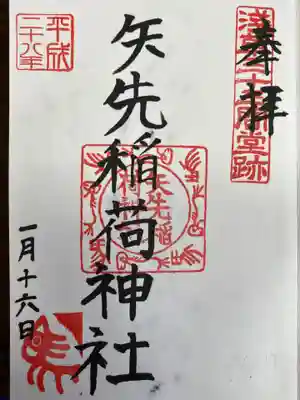 奉拝
浅草三十三間堂跡
矢先稲荷神社
矢先稲荷
平成
二十八年
一月十六日